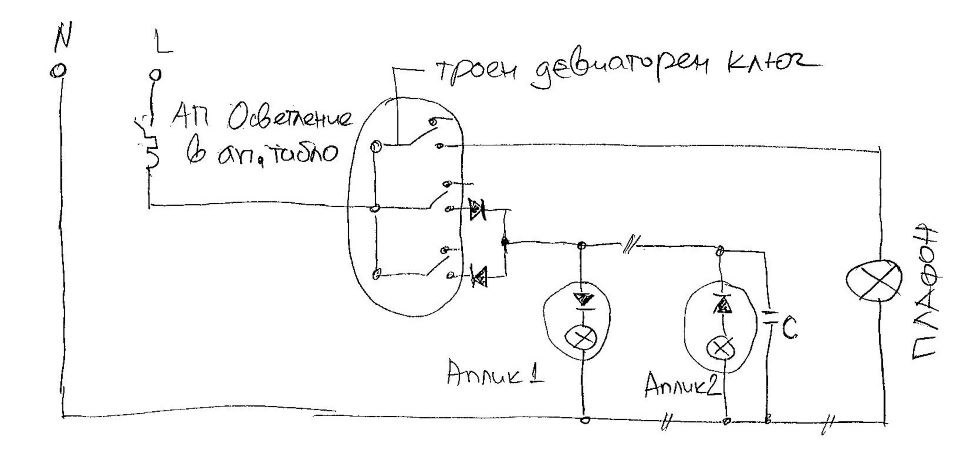 N
L
троен девиаторен ключ
АП Осветление
в ап. табло
Аплик 1
Аплик 2
C
ПЛАФОН